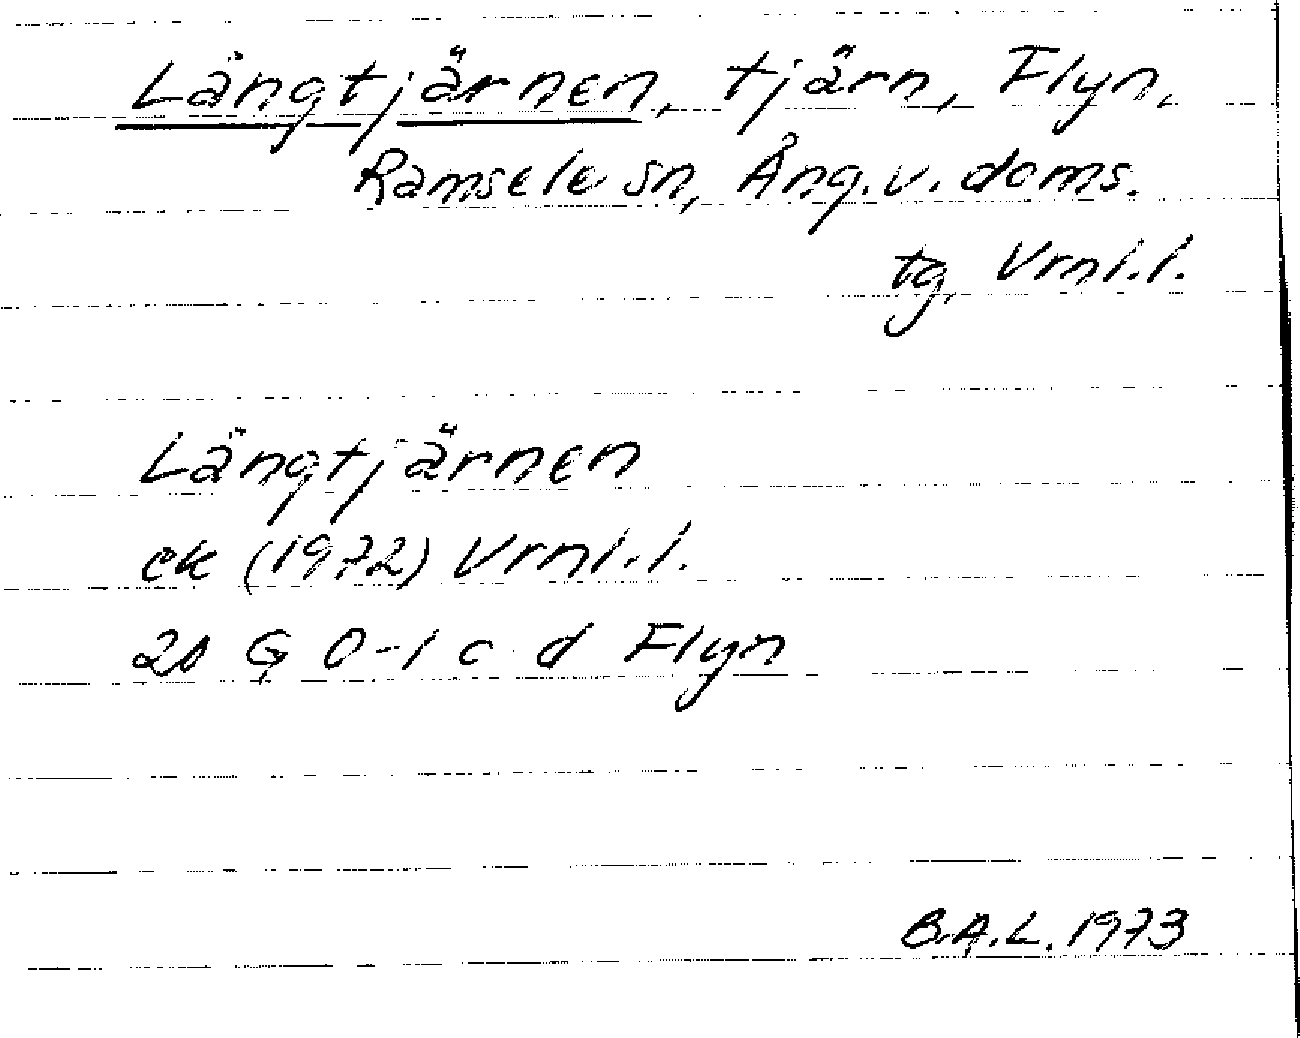 Längtjärnen, tjärn, Flyn,
Ramsele sn, Ång.v.doms.
tg, Vrnl.l.
Längtjärnen
ek (1972) Vrnl.l.
20 G 0-1 c d Flyn
B.A.L. 1973